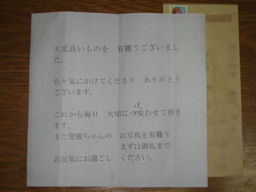 大変良いものを　有難うございまし
た。
色々気にかけてくださり　ありがとう
ございます。
これから毎日　大切に使わせて頂き
ます。
また　ちゃんの　お写真を有難う
まずは御礼まで
お元気にお過ごし　ください。